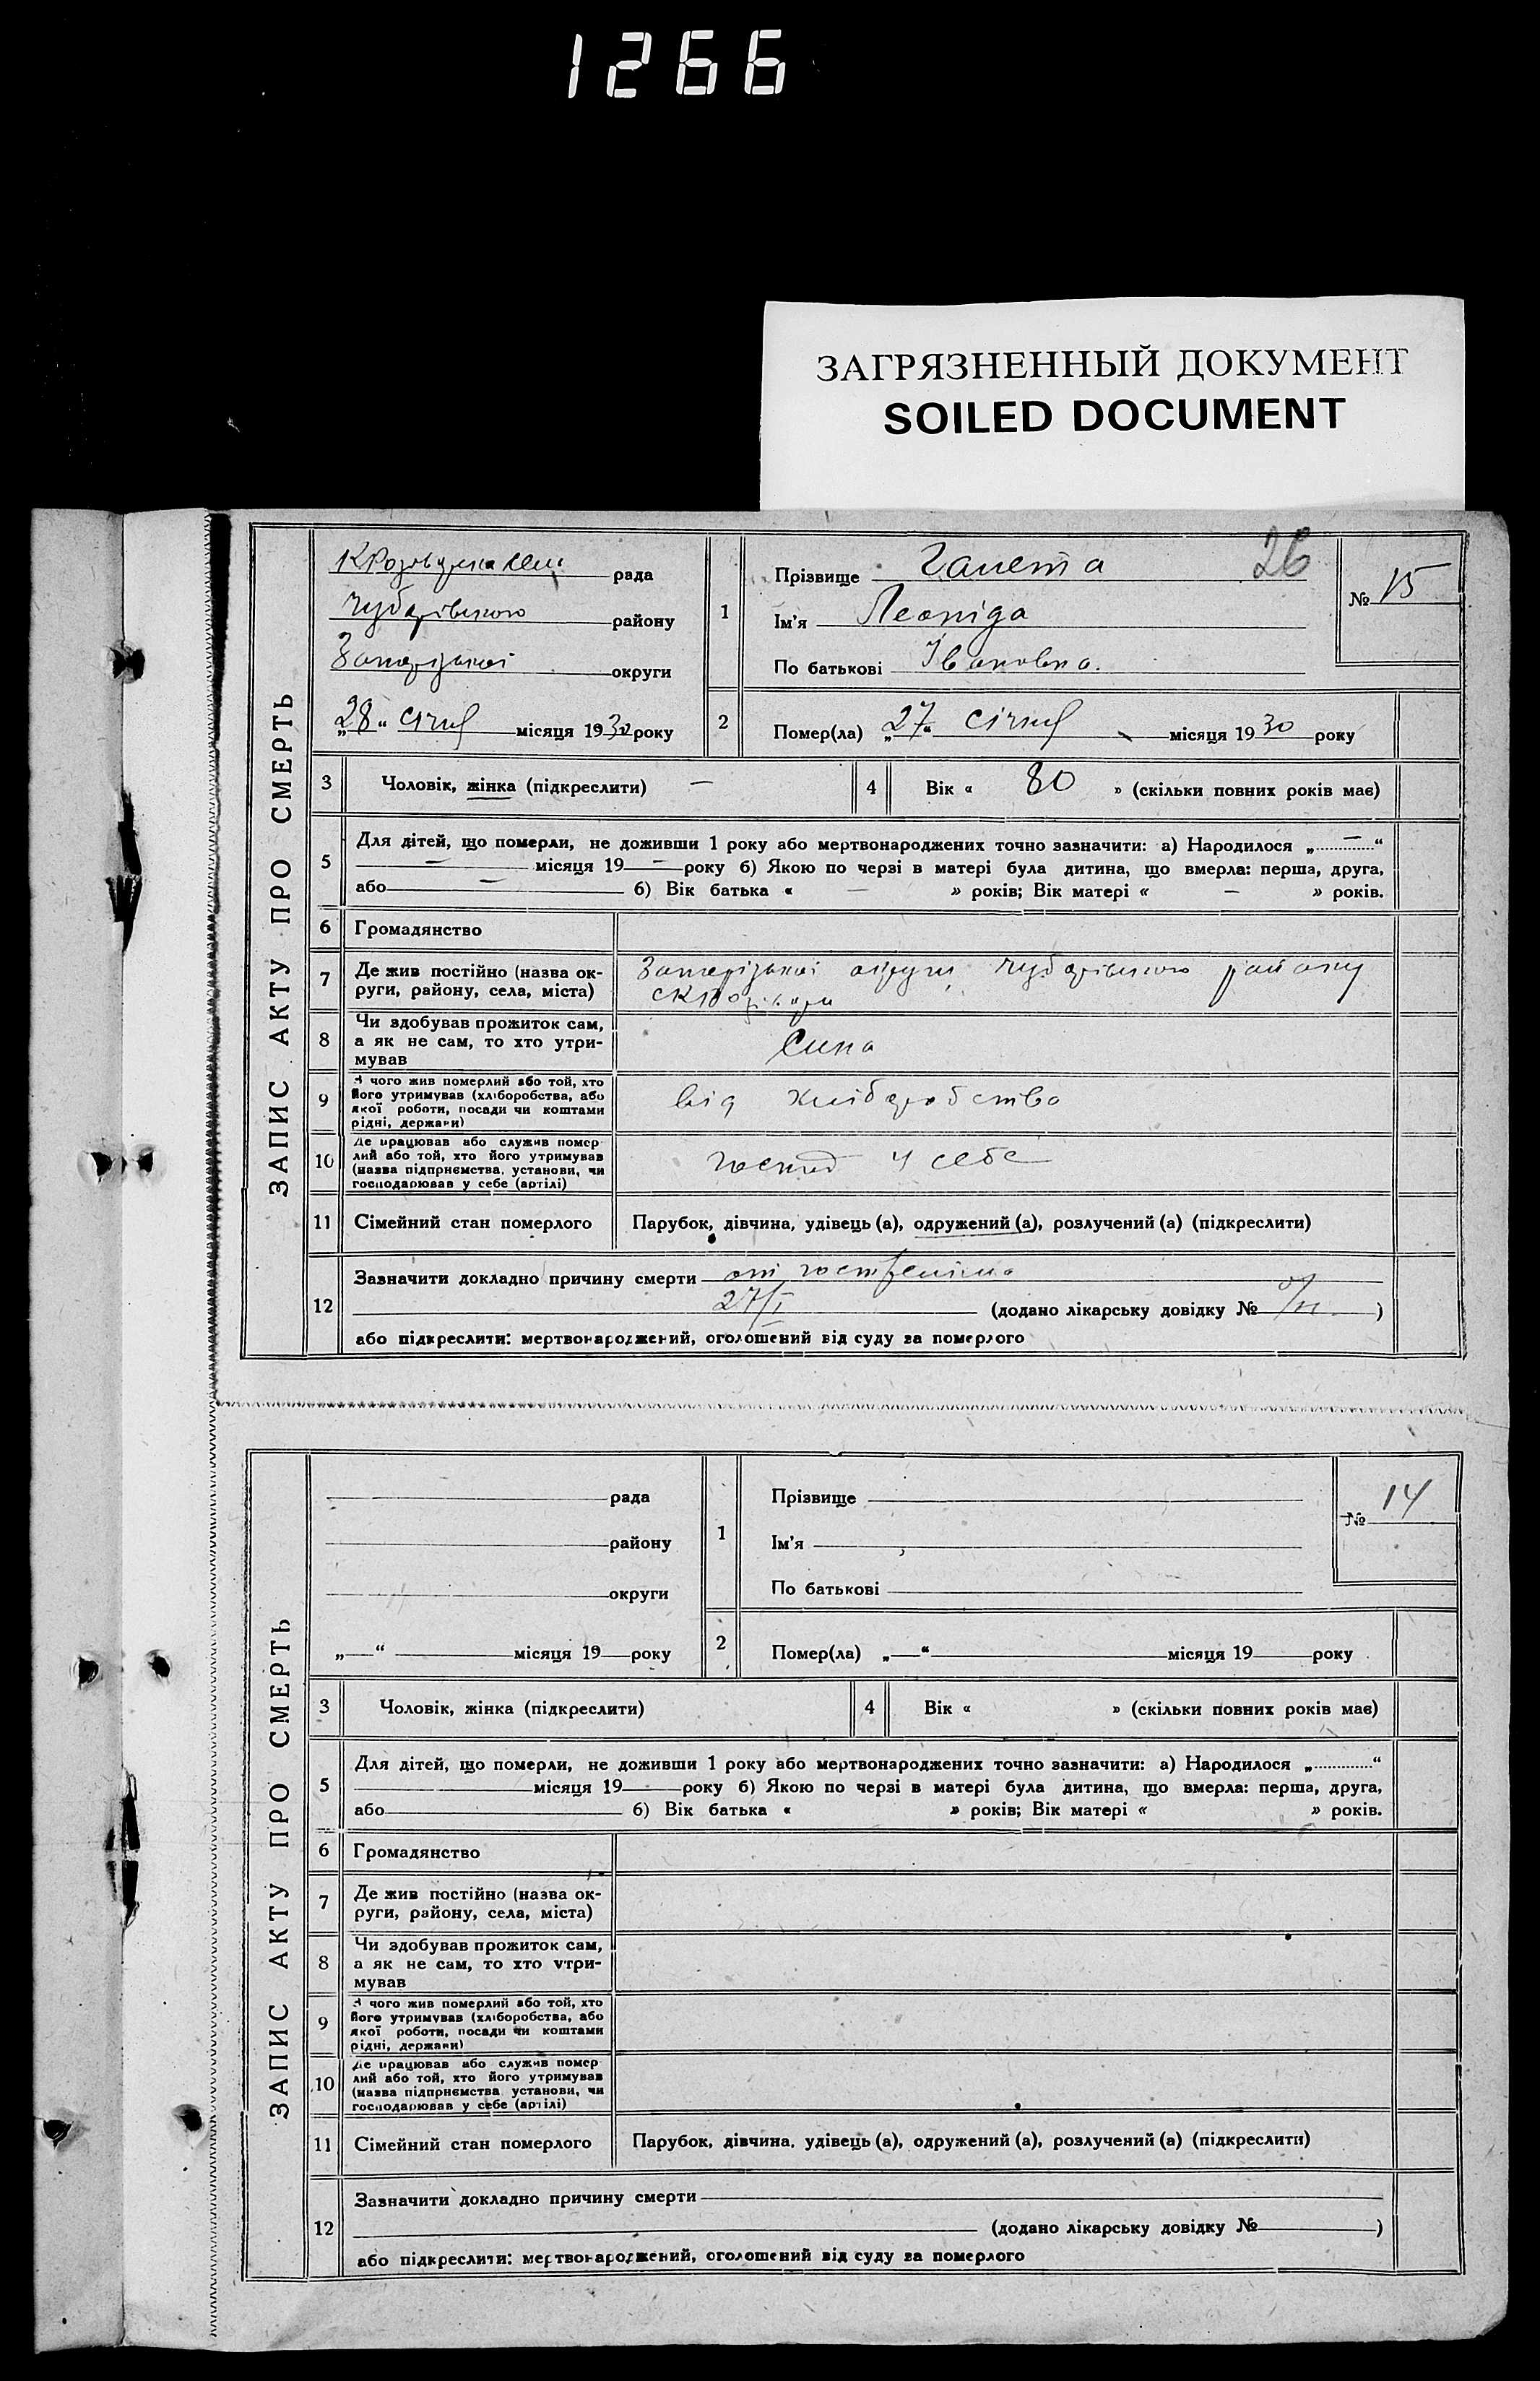 1266
ЗАГРЯЗНЕННЫЙ ДОКУМЕНТ
SOILED DOCUMENT
ЗАПИС АКТУ ПРО СМЕРТЬ
рада
Чубарівського району
Запорізької округи
„28“ січня місяця 1930 року
26
1 Прізвище Галета
Ім'я Леоніда
По батькові Івановна.
№ 15
2 Помер(ла) „27“ січня місяця 1930 року
3 Чоловік, жінка (підкреслити) —
4 Вік « 80 » (скільки повних років має)
5 Для дітей, що померли, не доживши 1 року або мертвонароджених точно зазначити: а) Народилося „ — “
— місяця 19 — року б) Якою по черзі в матері була дитина, що вмерла: перша, друга,
або — б) Вік батька « — » років; Вік матері « — » років.
6 Громадянство
7 Де жив постійно (назва округи, району, села, міста) Запорізької округи, Чубарівського району
8 Чи здобував прожиток сам,
а як не сам, то хто утри-
мував
Сина
9 З чого жив померлий або той, хто
його утримував (хліборобства, або
якої роботи, посади чи коштами
рідні, держави)
від хліборобства
10 Де працював або служив помер-
лий або той, хто його утримував
(назва підприємства, установи, чи
господарював у себе (артілі)
госпид у себе
11 Сімейний стан померлого Парубок, дівчина, удівець (а), одружений (а), розлучений (а) (підкреслити)
12 Зазначити докладно причину смерти от
27/I (додано лікарську довідку № )
або підкреслити: мертвонароджений, оголошений від суду за померлого
ЗАПИС АКТУ ПРО СМЕРТЬ
рада
району
округи
„ “ місяця 19 року
1 Прізвище
Ім'я
По батькові
№ 14
2 Помер(ла) „ “ місяця 19 року
3 Чоловік, жінка (підкреслити)
4 Вік « » (скільки повних років має)
5 Для дітей, що померли, не доживши 1 року або мертвонароджених точно зазначити: а) Народилося „ “
місяця 19 року б) Якою по черзі в матері була дитина, що вмерла: перша, друга,
або б) Вік батька « » років; Вік матері « » років.
6 Громадянство
7 Де жив постійно (назва ок-
руги, району, села, міста)
8 Чи здобував прожиток сам,
а як не сам, то хто утри-
мував
9 З чого жив померлий або той, хто
його утримував (хліборобства, або
якої роботи, посади чи коштами
рідні, держави)
10 Де працював або служив помер-
лий або той, хто його утримував
(назва підприємства, установи, чи
господарював у себе (артілі)
11 Сімейний стан померлого Парубок, дівчина, удівець (а), одружений (а), розлучений (а) (підкреслити)
12 Зазначити докладно причину смерти
(додано лікарську довідку № )
або підкреслити: мертвонароджений, оголошений від суду за померлого